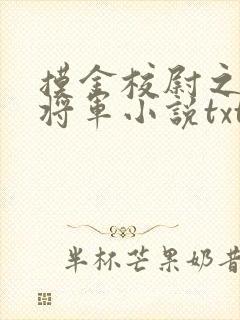 摸金校尉之
将军小说txt
半杯芒果奶昔